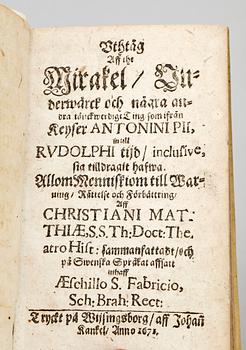 Vthtåg
Aff the
Mirakel / Vn-
derwärck och några an-
dra tänckwerdige Ting som ifrån
Keyser ANTONINI PII,
in till
RVDOLPHI tijd / inclusive,
sig tilldragit hafwa.
Allom Menniskiom till War-
ning / Rättelse och Förbättring /
Aff
CHRISTIANI MAT-
THIÆ, S.S. Th: Doct: The-
atro Hist: sammanfattadt / och
på Swenska Språket affsatt
uthaff
Æschillo S. Fabricio,
Sch: Brah: Rect:
Tryckt på Wijsingsborg / aff Johan
Kankel / Anno 1671.